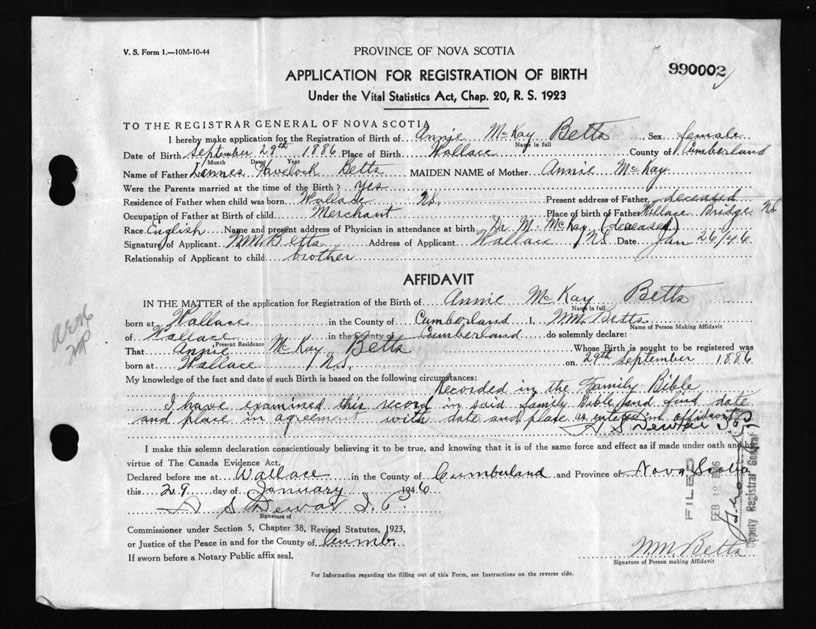 V. S. Form 1.—10M-10-44
PROVINCE OF NOVA SCOTIA
990002
APPLICATION FOR REGISTRATION OF BIRTH
Under the Vital Statistics Act, Chap. 20, R. S. 1923
TO THE REGISTRAR GENERAL OF NOVA SCOTIA
I hereby make application for the Registration of Birth of Annie McKay Betts Sex female
Name in full
Date of Birth September 29th 1886 Place of Birth Wallace County of Cumberland
Month Date Year
Name of Father Havelock Betts MAIDEN NAME of Mother Annie McKay
Were the Parents married at the time of the Birth? Yes
Residence of Father when child was born Wallace N.S. Present address of Father deceased
Occupation of Father at Birth of child Merchant Place of birth of Father Wallace Bridge N.S.
Race English Name and present address of Physician in attendance at birth Dr. M. McKay (deceased)
Signature of Applicant W.M. Betts Address of Applicant Wallace N.S. Date Jan 26/46
Relationship of Applicant to child brother
AFFIDAVIT
IN THE MATTER of the application for Registration of the Birth of Annie McKay Betts
Name in full
born at Wallace in the County of Cumberland I, W.M. Betts
Name of Person Making Affidavit
of Wallace in the County of Cumberland do solemnly declare:
Present Residence
That Annie McKay Betts Whose Birth is sought to be registered was
born at Wallace N.S. on 29th September 1886
My knowledge of the fact and date of such Birth is based on the following circumstances:
Recorded in the Family Bible
I have examined this record in said family Bible and find date
and place in agreement with date and place as entered in affidavit
A S Dewar J.P.
I make this solemn declaration conscientiously believing it to be true, and knowing that it is of the same force and effect as if made under oath and by
virtue of The Canada Evidence Act.
Declared before me at Wallace in the County of Cumberland and Province of Nova Scotia
this 29 day of January 1946
A S Dewar J.P.
Signature of
Commissioner under Section 5, Chapter 38, Revised Statutes, 1923,
or Justice of the Peace in and for the County of Cumb.
If sworn before a Notary Public affix seal.
FILED
FEB 12
Deputy Registrar General
W.M. Betts
Signature of Person making Affidavit
For Information regarding the filling out of this Form, see Instructions on the reverse side.